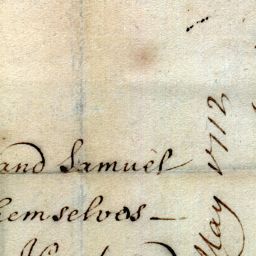 and Samuel
hemselves —
May 1712